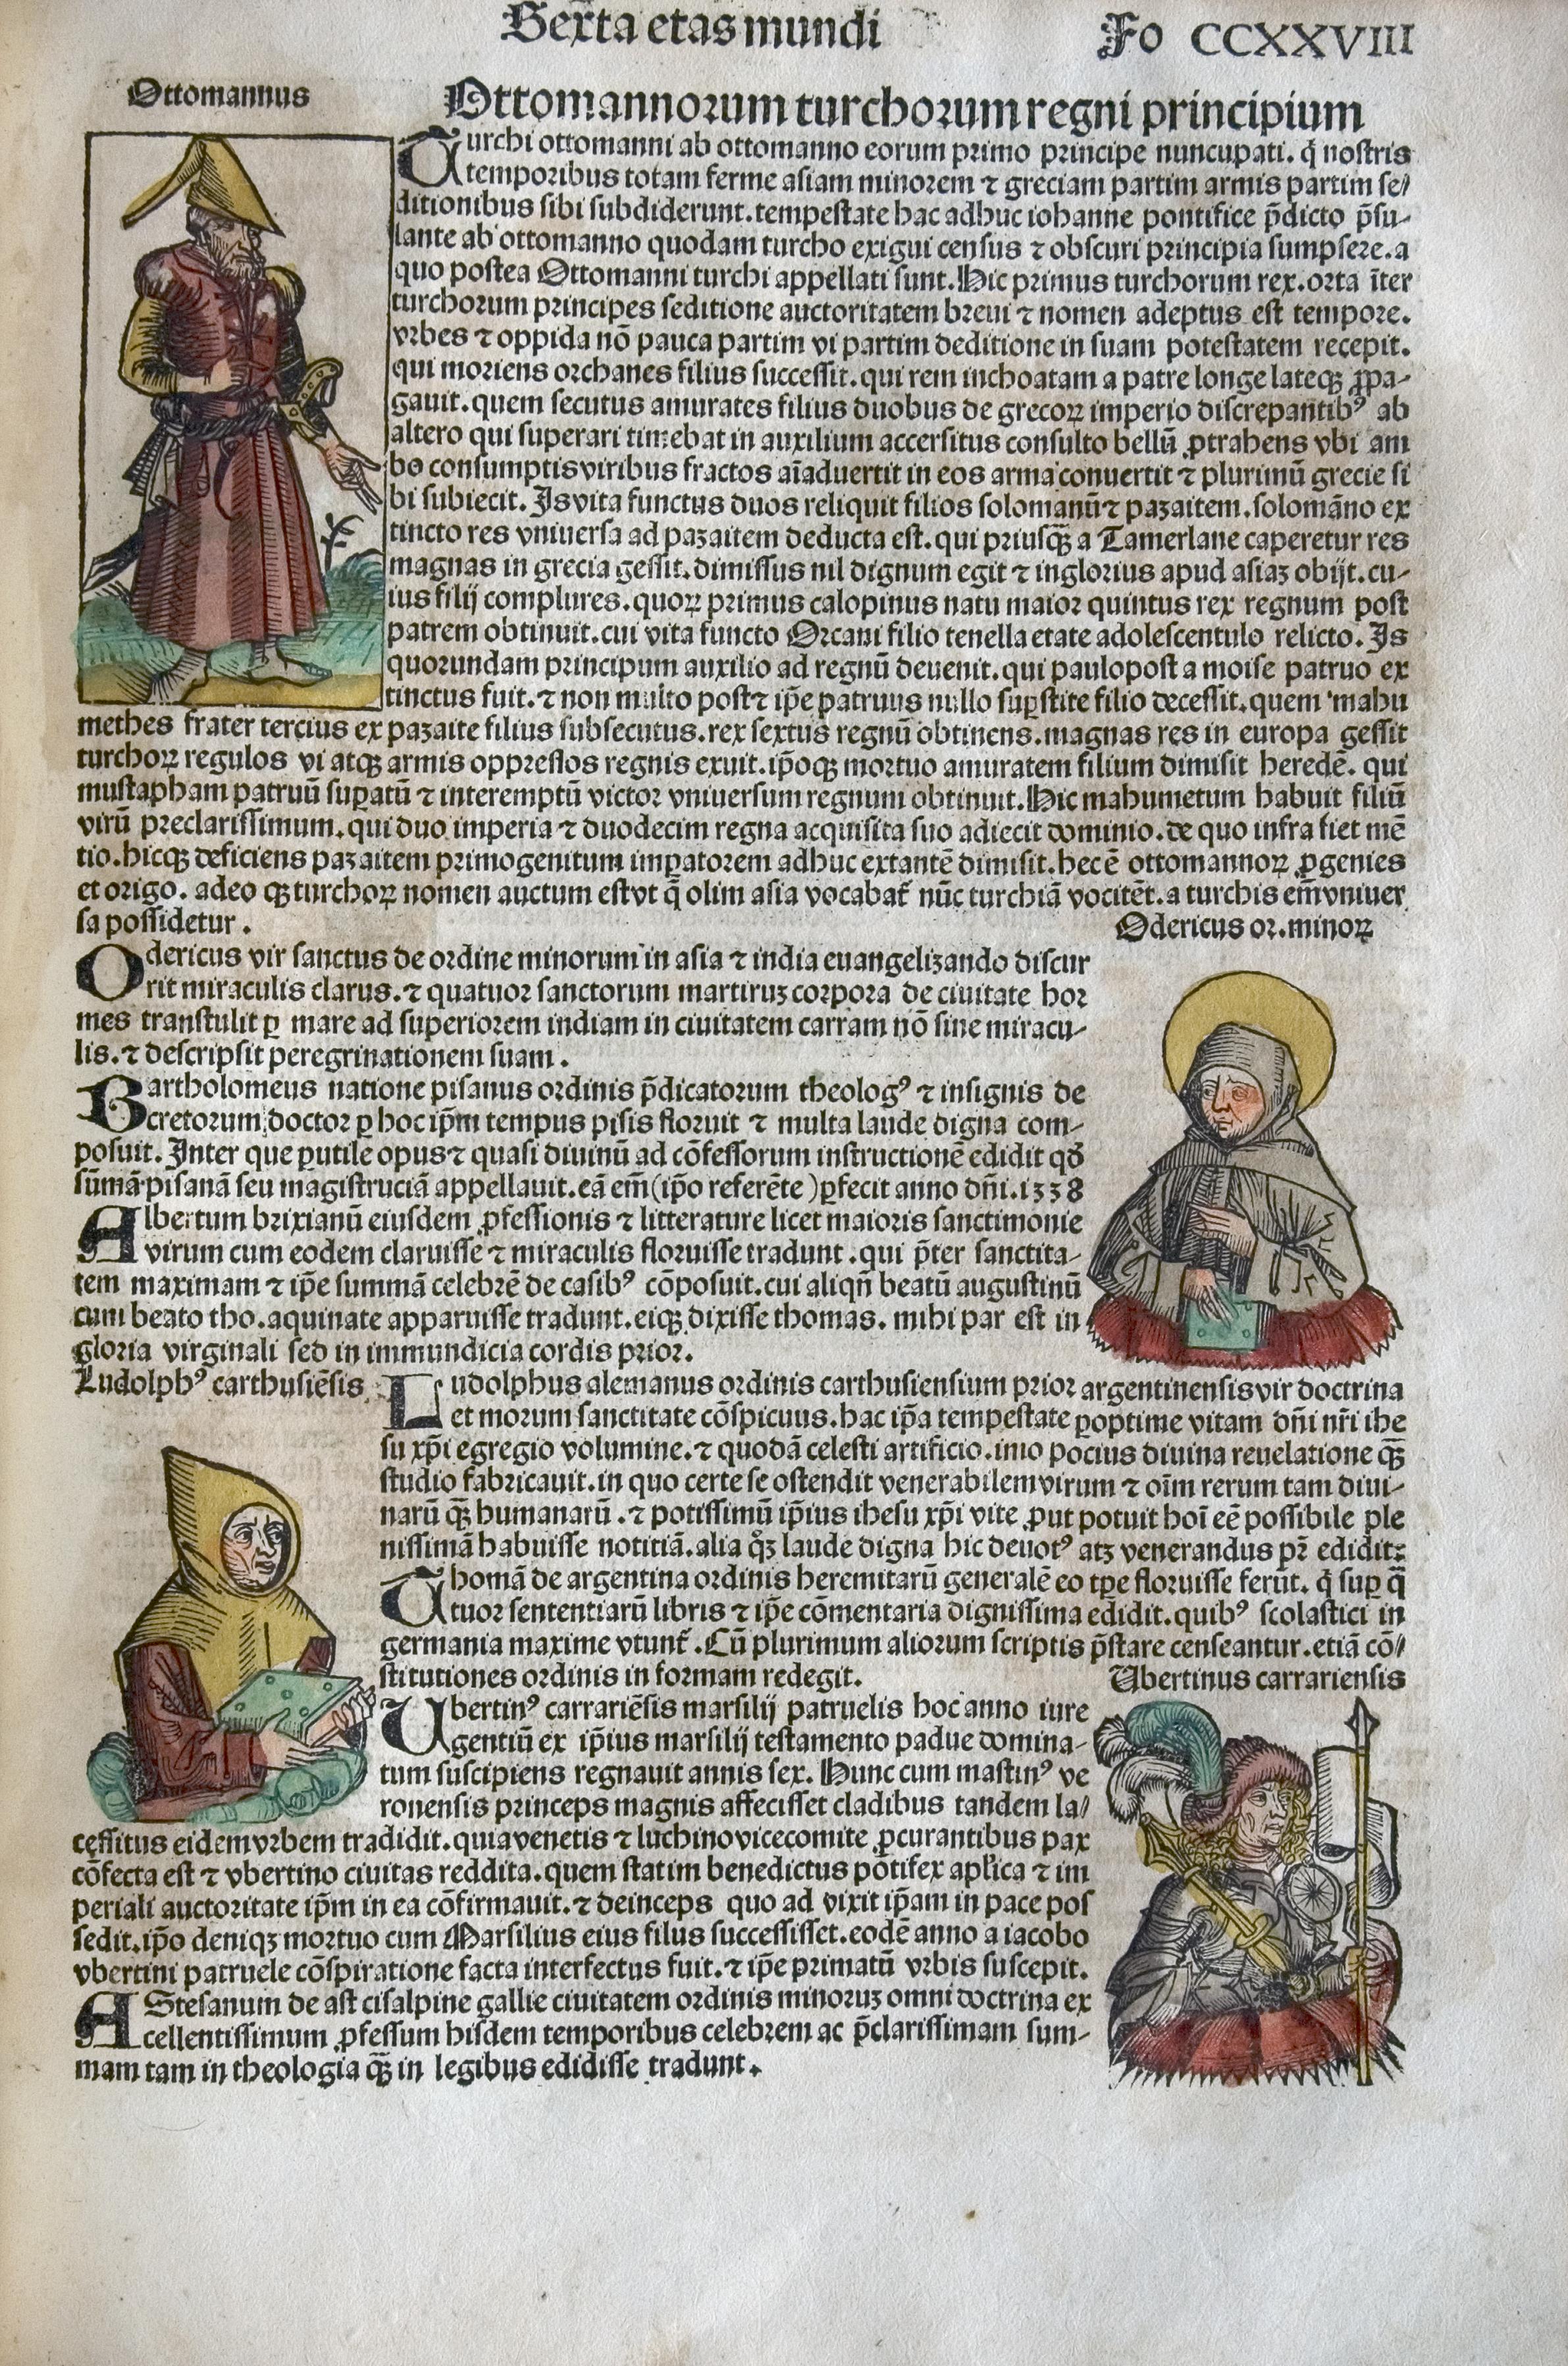 Sexta etas mundi
Fo CCXXVIII
Ottomannus
Ottomannorum turchorum regni principium
Turchi ottomanni ab ottomanno eorum primo principe nuncupati. q̄ nostris
temporibus totam ferme asiam minorem ⁊ greciam partim armis partim se/
ditionibus sibi subdiderunt. tempestate hac adhuc iohanne pontifice p̄dicto p̄su-
lante ab ottomanno quodam turcho exigui census ⁊ obscuri principia sumpsere. a
quo postea Ottomanni turchi appellati sunt. Hic primus turchorum rex. orta īter
turchorum principes seditione auctoritatem breui ⁊ nomen adeptus est tempore.
vrbes ⁊ oppida nō pauca partim vi partim deditione in suam potestatem recepit.
qui moriens orchanes filius successit. qui rem inchoatam a patre longe lateqꝫ ꝓpa-
gauit. quem secutus amurates filius duobus de grecoꝝ imperio discrepantibꝰ ab
altero qui superari timebat in auxilium accersitus consulto bellū ꝓtrahens vbi am
bo consumptis viribus fractos aīaduertit in eos arma conuertit ⁊ plurimū grecie si
bi subiecit. Is vita functus duos reliquit filios solomanū ⁊ pazaitem. solomāno ex
tincto res vniuersa ad pazaitem deducta est. qui priusqꝫ̄ a Tamerlane caperetur res
magnas in grecia gessit. dimissus nil dignum egit ⁊ inglorius apud asiaꝫ obijt. cu-
ius filij complures. quoꝝ primus calopinus natu maior quintus rex regnum post
patrem obtinuit. cui vita functo Orcani filio tenella etate adolescentulo relicto. Is
quorundam principum auxilio ad regnū deuenit. qui paulopost a moise patruo ex
tinctus fuit. ⁊ non multo post ⁊ ip̄e patruus nullo suꝑstite filio decessit. quem mahu
methes frater tercius ex pazaite filius subsecutus. rex sextus regnū obtinens. magnas res in europa gessit
turchoꝝ regulos vi atqꝫ armis oppressos regnis exuit. ip̄oqꝫ mortuo amuratem filium dimisit heredē. qui
mustapham patruū suꝑatū ⁊ interemptū victor vniuersum regnum obtinuit. Hic mahumetum habuit filiū
virū preclarissimum. qui duo imperia ⁊ duodecim regna acquisita suo adiecit dominio. de quo infra fiet mē
tio. hicqꝫ deficiens pazaitem primogenitum imꝑatorem adhuc extantē dimisit. hec ē ottomannoꝝ ꝓgenies
et origo. adeo qꝫ turchoꝝ nomen auctum est vt q̄ olim asia vocabat̄ nūc turchiā vocitēt. a turchis em̄ vniuer
sa possidetur.
Odericus or. minoꝝ
Odericus vir sanctus de ordine minorum in asia ⁊ india euangelizando discur
rit miraculis clarus. ⁊ quatuor sanctorum martiruꝫ corpora de ciuitate hor
mes transtulit ꝑ mare ad superiorem indiam in ciuitatem carram nō sine miracu-
lis. ⁊ descripsit peregrinationem suam.
Bartholomeus natione pisanus ordinis p̄dicatorum theologꝰ ⁊ insignis de
cretorum doctor ꝑ hoc ip̄m tempus pisis floruit ⁊ multa laude digna com-
posuit. Inter que ꝑutile opus ⁊ quasi diuinū ad cōfessorum instructionē edidit qd̄
sūmā pisanā seu magistruciā appellauit. eā em̄ (ip̄o referēte) ꝑfecit anno dn̄i. 1338
Albertum brixianū eiusdem ꝓfessionis ⁊ litterature licet maioris sanctimonie
virum cum eodem claruisse ⁊ miraculis floruisse tradunt. qui p̄ter sanctita-
tem maximam ⁊ ip̄e summā celebrē de casibꝰ cōposuit. cui aliqn̄ beatū augustinū
cum beato tho. aquinate apparuisse tradunt. eiqꝫ dixisse thomas. mihi par est in
gloria virginali sed in immundicia cordis prior.
Ludolphꝰ carthusiēsis
Ludolphus alemanus ordinis carthusiensium prior argentinensis vir doctrina
et morum sanctitate cōspicuus. hac ip̄a tempestate ꝑoptime vitam dn̄i nr̄i ihe
su xp̄i egregio volumine. ⁊ quodā celesti artificio. imo pocius diuina reuelatione qꝫ̄
studio fabricauit. in quo certe se ostendit venerabilem virum ⁊ oīm rerum tam diui-
narū qꝫ̄ humanarū. ⁊ potissimū ip̄ius ihesu xp̄i vite ꝓut potuit hoī eē possibile ple
nissimā habuisse notitiā. alia qꝫ laude digna hic deuotꝰ atꝫ venerandus pr̄ edidit:
Thomā de argentina ordinis heremitarū generalē eo tp̄e floruisse ferūt. q̄ suꝑ q̄
tuor sententiarū libris ⁊ ip̄e cōmentaria dignissima edidit. quibꝰ scolastici in
germania maxime vtunt̄. Cū plurimum aliorum scriptis p̄stare censeantur. etiā cō/
stitutiones ordinis in formam redegit.
Ubertinus carrariensis
Ubertinꝰ carrariēsis marsilij patruelis hoc anno iure
gentiū ex ip̄ius marsilij testamento padue domina-
tum suscipiens regnauit annis sex. Hunc cum mastinꝰ ve
ronensis princeps magnis affecisset cladibus tandem la/
cessitus eidem vrbem tradidit. quia venetis ⁊ luchino vicecomite ꝓcurantibus pax
cōfecta est ⁊ vbertino ciuitas reddita. quem statim benedictus pōtifex apl̄ica ⁊ im
periali auctoritate ip̄m in ea cōfirmauit. ⁊ deinceps quo ad vixit ip̄am in pace pos
sedit. ip̄o deniqꝫ mortuo cum Marsilius eius filus successisset. eodē anno a iacobo
vbertini patruele cōspiratione facta interfectus fuit. ⁊ ip̄e primatū vrbis suscepit.
AStesanum de ast cisalpine gallie ciuitatem ordinis minoruꝫ omni doctrina ex
cellentissimum ꝓfessum hisdem temporibus celebrem ac p̄clarissimam sum-
mam tam in theologia qꝫ̄ in legibus edidisse tradunt.